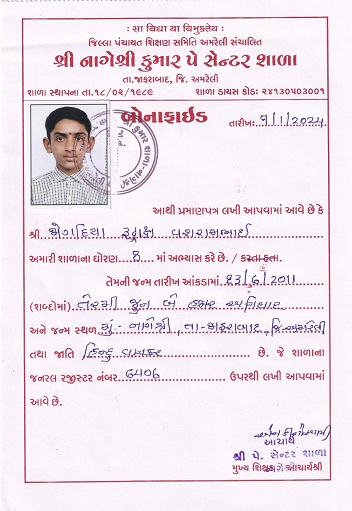 : સા વિદ્યા યા વિમુક્તયે :
જિલ્લા પંચાયત શિક્ષણ સમિતિ અમરેલી સંચાલિત
શ્રી નાગેશ્રી કુમાર પે સેન્ટર શાળા
તા.જાફરાબાદ, જિ. અમરેલી
શાળા સ્થાપના તા.૧૮/૦૨/૧૯૮૯ શાળા ડાયસ કોડ: ૨૪૧૩૦૫૦૩૦૦૧
બોનાફાઇડ
તારીખ: ૧/1/૨૦૨૫
આથી પ્રમાણપત્ર લખી આપવામાં આવે છે કે
શ્રી રૂદ્રાક્ષ વશરામભાઈ
અમારી શાળાના ધોરણ 8 માં અભ્યાસ કરે છે. / કરતા હતા.
તેમની જન્મ તારીખ આંકડામાં ૧૩/૬/૨૦૧૧
(શબ્દોમાં) તેરમી જુન બે હજાર અગિયાર
અને જન્મ સ્થળ મું.- નાગેશ્રી, તા-જાફરાબાદ, જિ-અમરેલી
તથા જાતિ હિન્દુ વણકર છે. જે શાળાના
જનરલ રજીસ્ટર નંબર ઉપરથી લખી આપવામાં
આવે છે.
આચાર્ય
શ્રી પે. સેન્ટર શાળા
મુખ્ય શિક્ષક / આચાર્યશ્રી